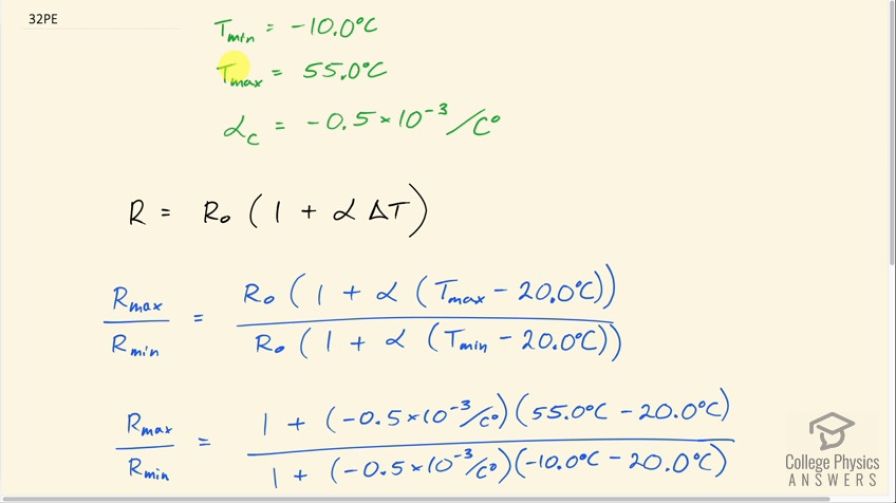 32PE
T_min = -10.0°C
T_max = 55.0°C
α_c = -0.5×10⁻³/C°
R = R₀ (1 + α ΔT)
R_max / R_min = R₀ (1 + α (T_max - 20.0°C)) / R₀ (1 + α (T_min - 20.0°C))
R_max / R_min = 1 + (-0.5×10⁻³/C°)(55.0°C - 20.0°C) / 1 + (-0.5×10⁻³/C°)(-10.0°C - 20.0°C)
College Physics
ANSWERS